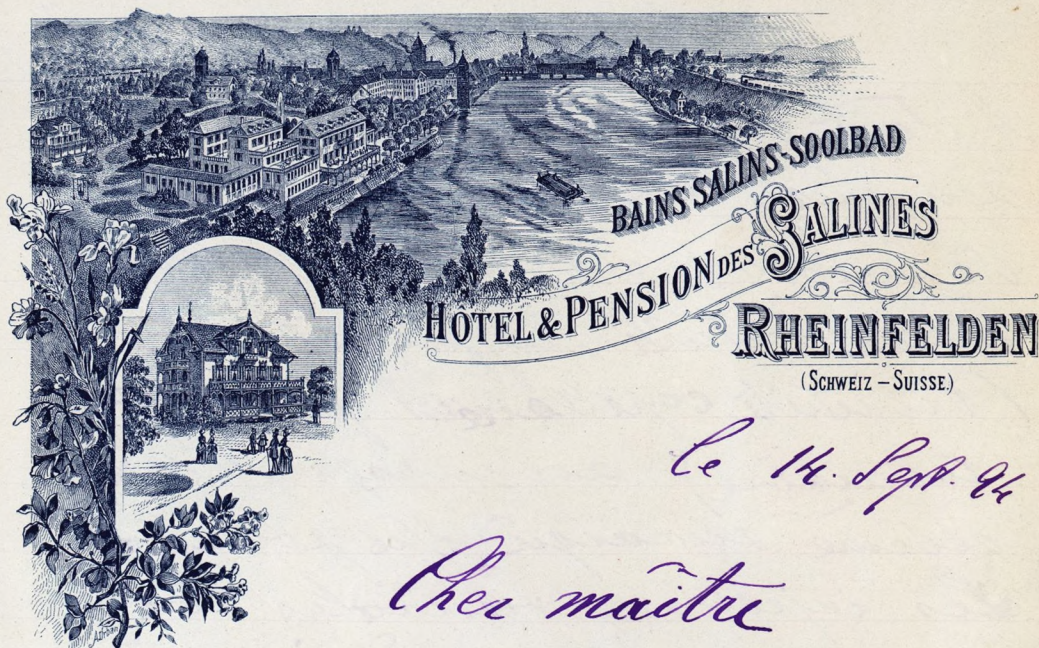 BAINS SALINS-SOOLBAD
HOTEL & PENSION DES SALINES
RHEINFELDEN
(SCHWEIZ – SUISSE.)
le 14. Sept. 94
Cher maître